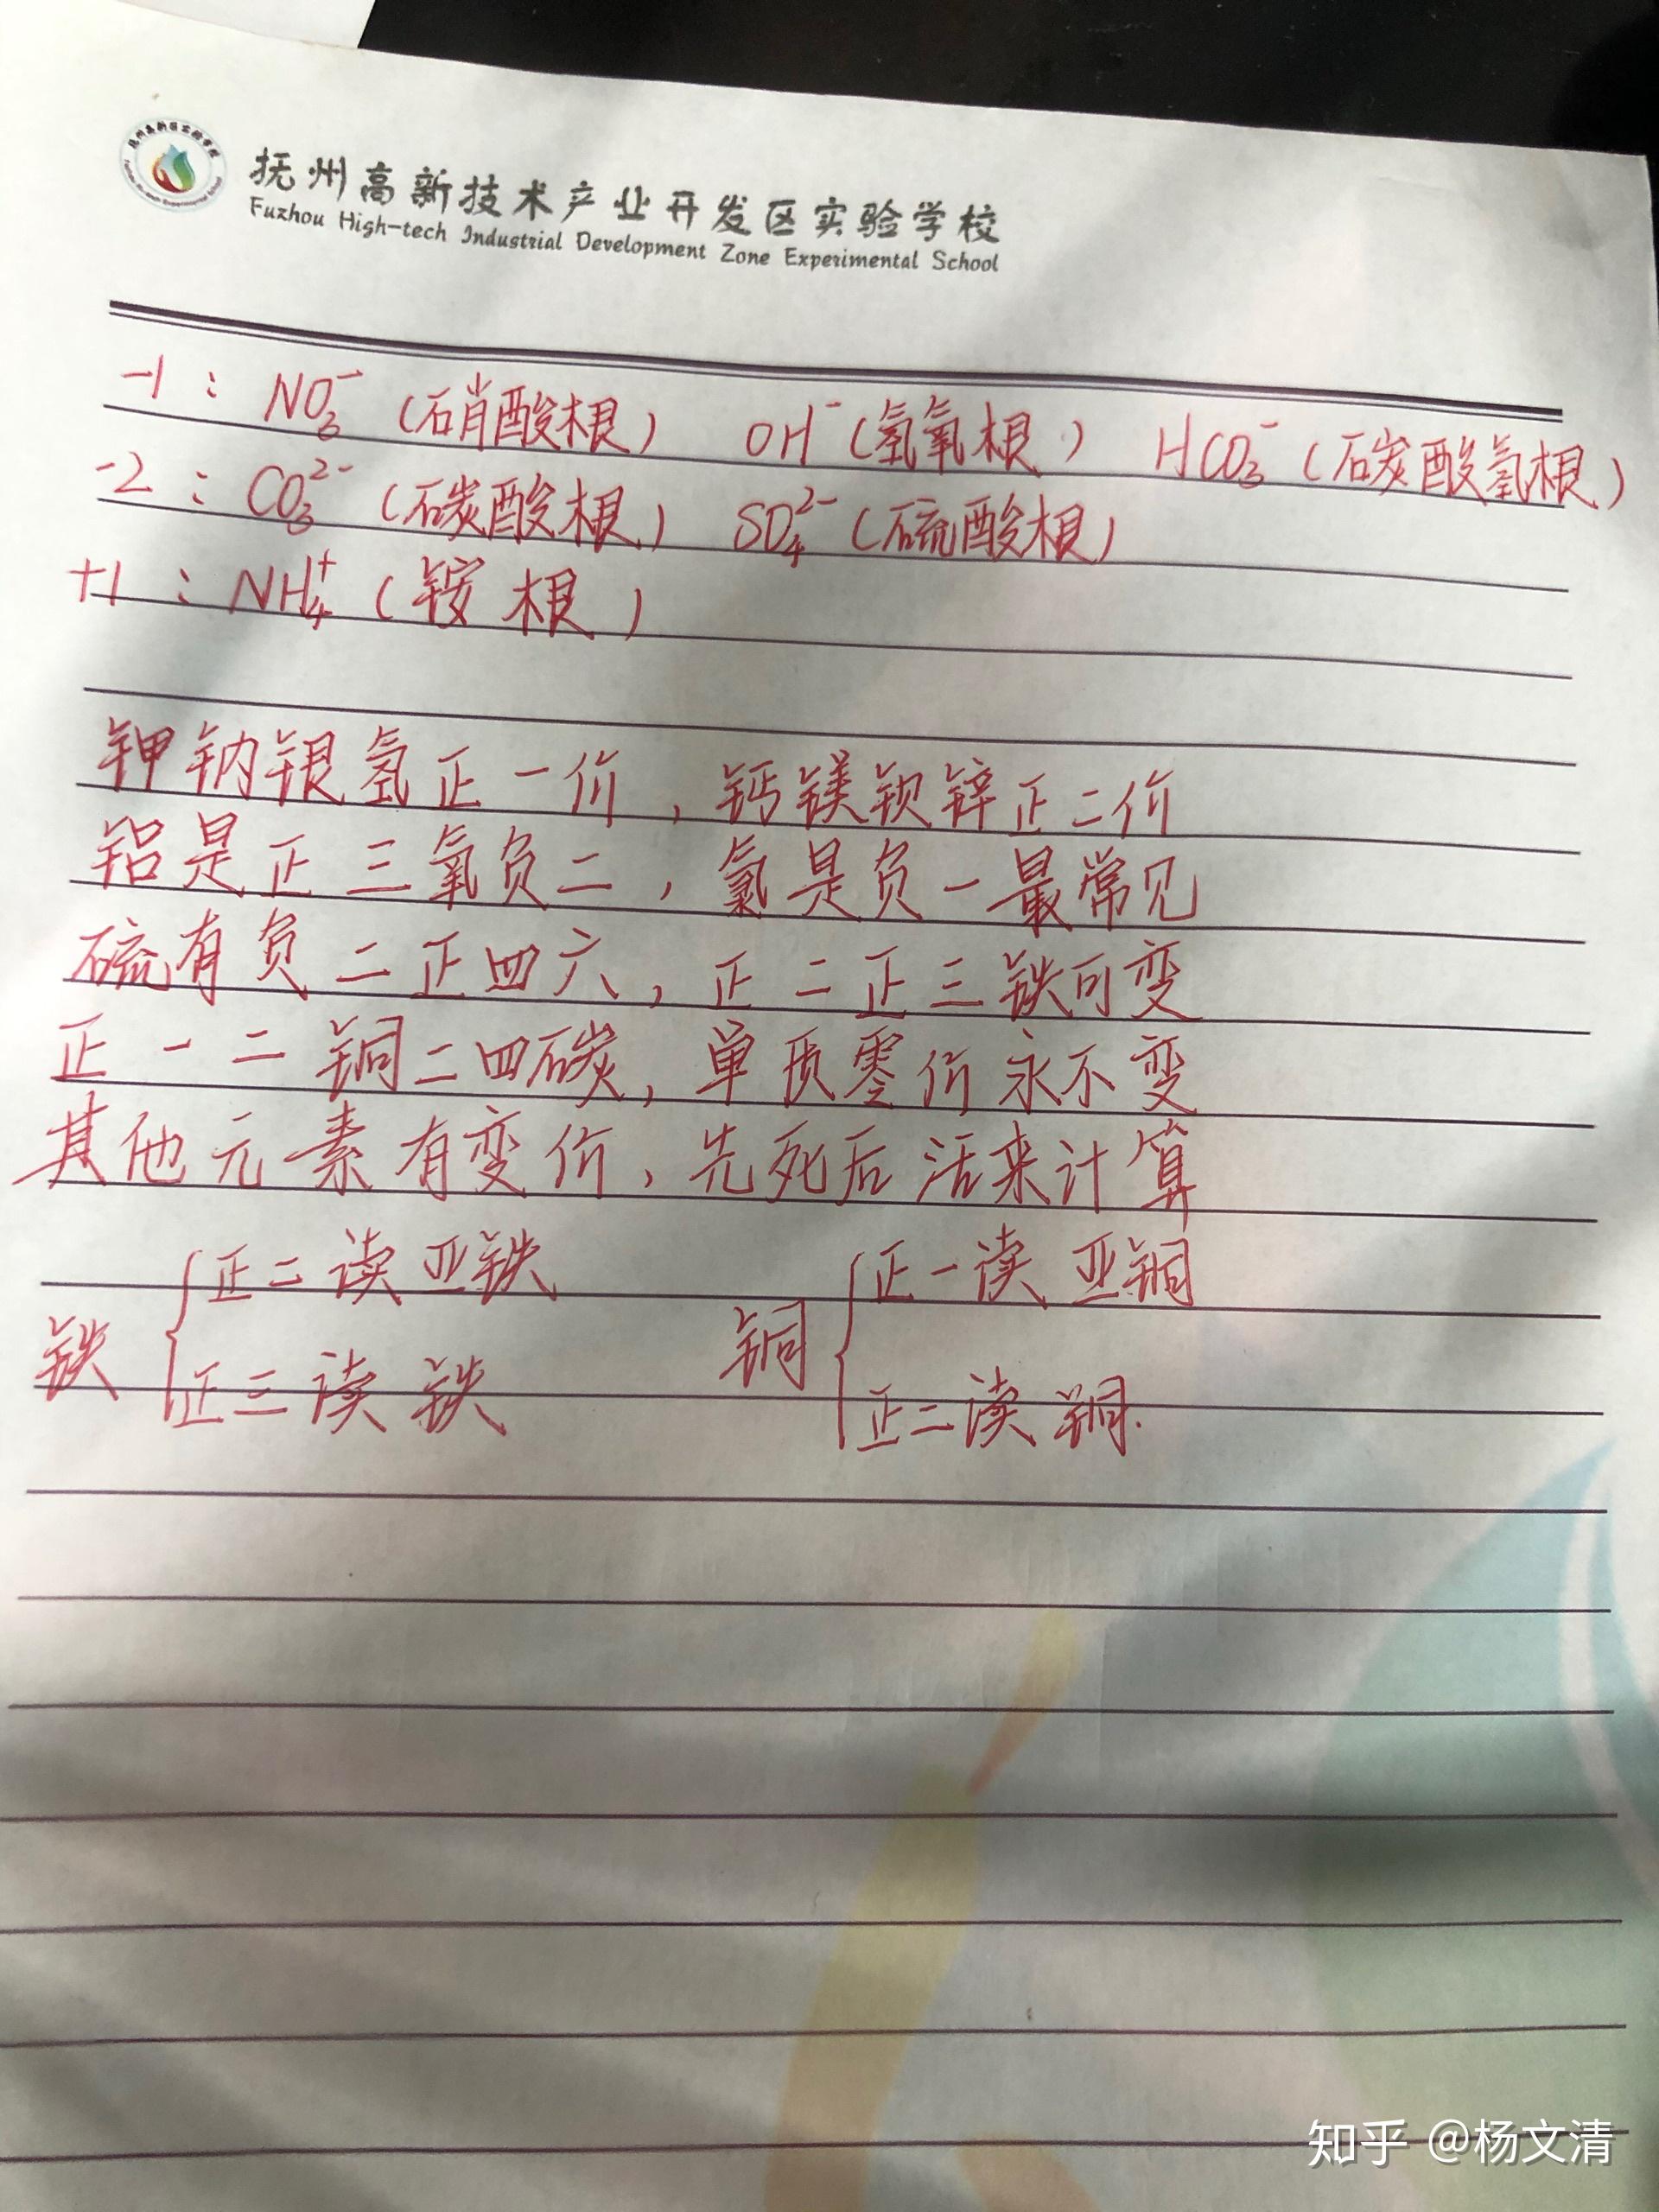 抚州高新技术产业开发区实验学校
Fuzhou High-tech Industrial Development Zone Experimental School
-1：NO₃⁻（硝酸根） OH⁻（氢氧根） HCO₃⁻（碳酸氢根）
-2：CO₃²⁻（碳酸根） SO₄²⁻（硫酸根）
+1：NH₄⁺（铵根）
钾钠银氢正一价，钙镁钡锌正二价
铝是正三氧负二，氯是负一最常见
硫有负二正四六，正二正三铁可变
正一二铜二四碳，单质零价永不变
其他元素有变价，先死后活来计算
铁{正二读亚铁 铜{正一读亚铜
正三读铁 正二读铜.
知乎 @杨文清